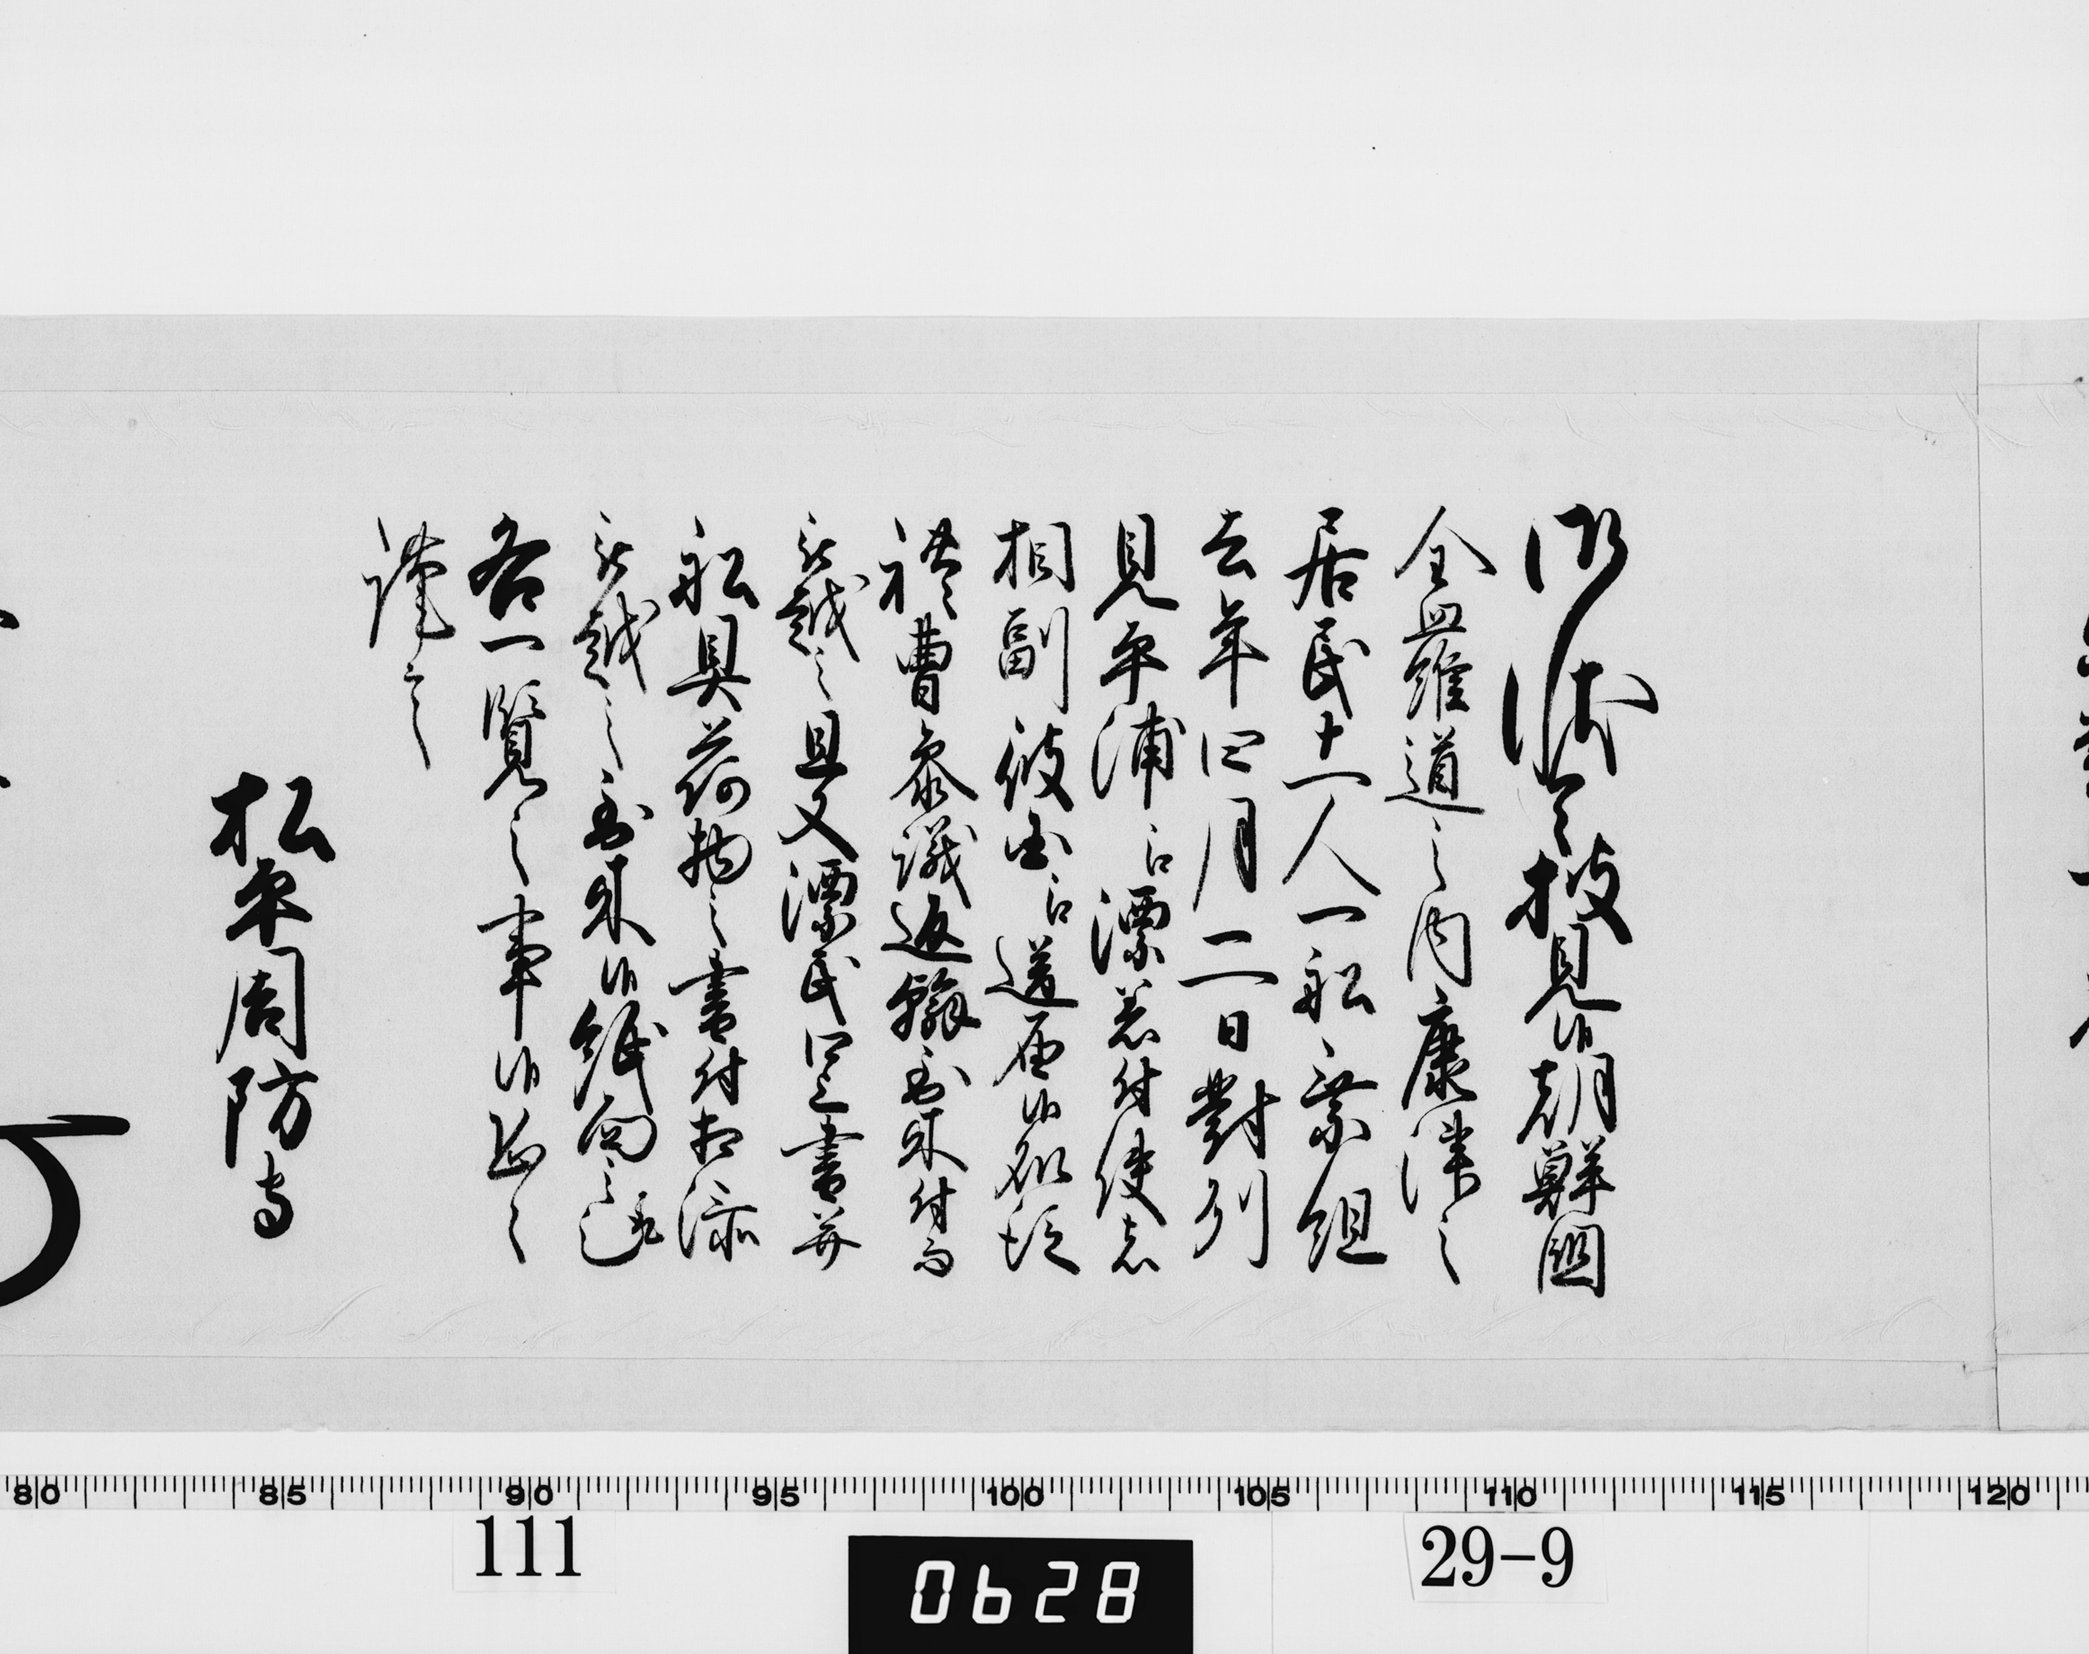 御状令披見候朝鮮國
全羅道之内康津之
居民十一人一船乗組
去年四月二日對州
見平浦江漂着付使者
相副彼国江送届候処従
禮曹参議返翰到来付而
被越之且又漂民口上書并
船具荷物之書付相添
被越之到来候紙面之趣
各一覧之事候恐々
謹言
松平周防守
80 85 90 95 100 105 110 115 120
111
0628
29-9